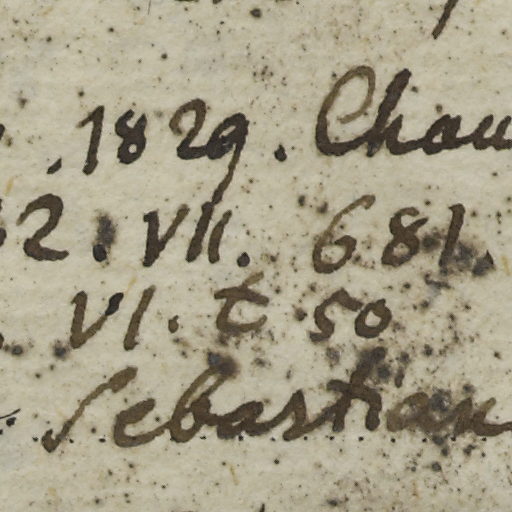 . 1829. Chau
32. VII. 681.
VI. t 50
Sebastian